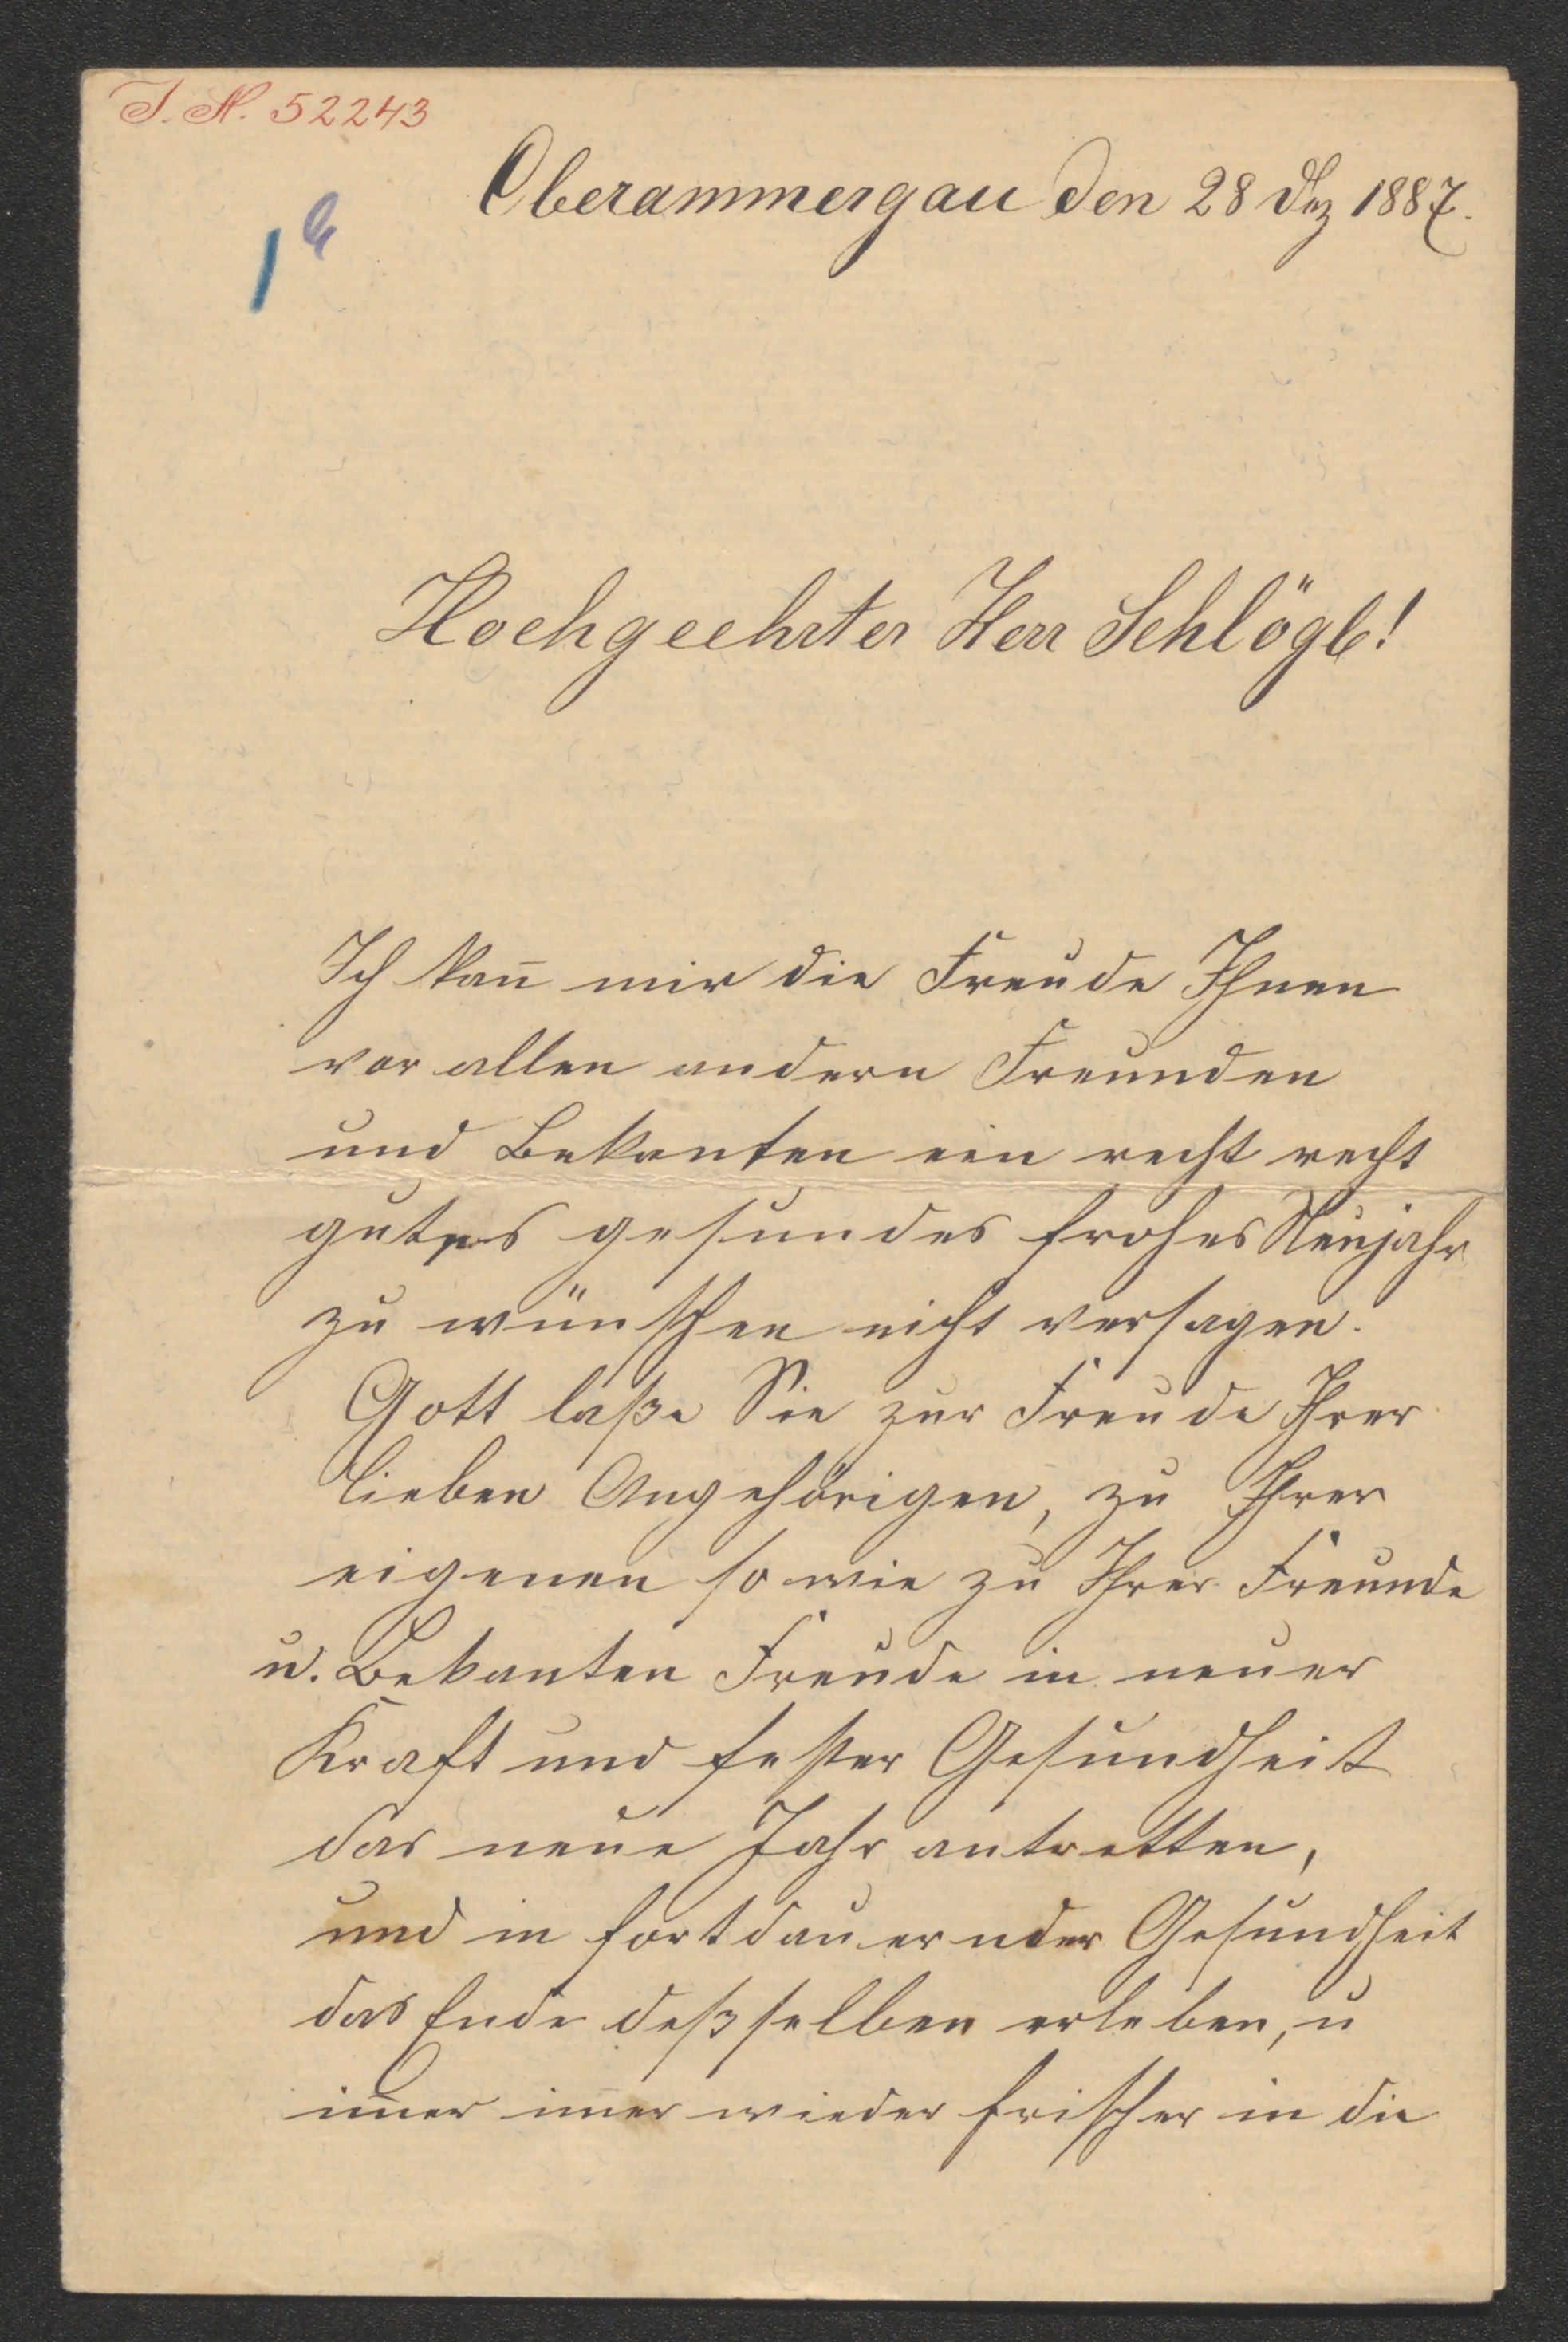 I. N. 52243
1
Oberammergau den 28 Dez 1887.
Hochgeehrter Herr Schlögl!
Ich kan̅ mir die Freude Ihnen
vor allen andern Freunden
und Bekanten ein recht recht
gutes gesundes frohes Neujahr
zu wünschen nicht versagen.
Gott laße Sie zur Freude Ihrer
lieben Angehörigen, zu Ihrer
eigenen so wie zu Ihrer Freunde
u. Bekanten Freude in neuer
Kraft und fester Gesundheit
das neue Jahr antretten,
und in fortdauernder Gesundheit
das Ende deßselben erleben, u
im̅er im̅er wieder frischer in die